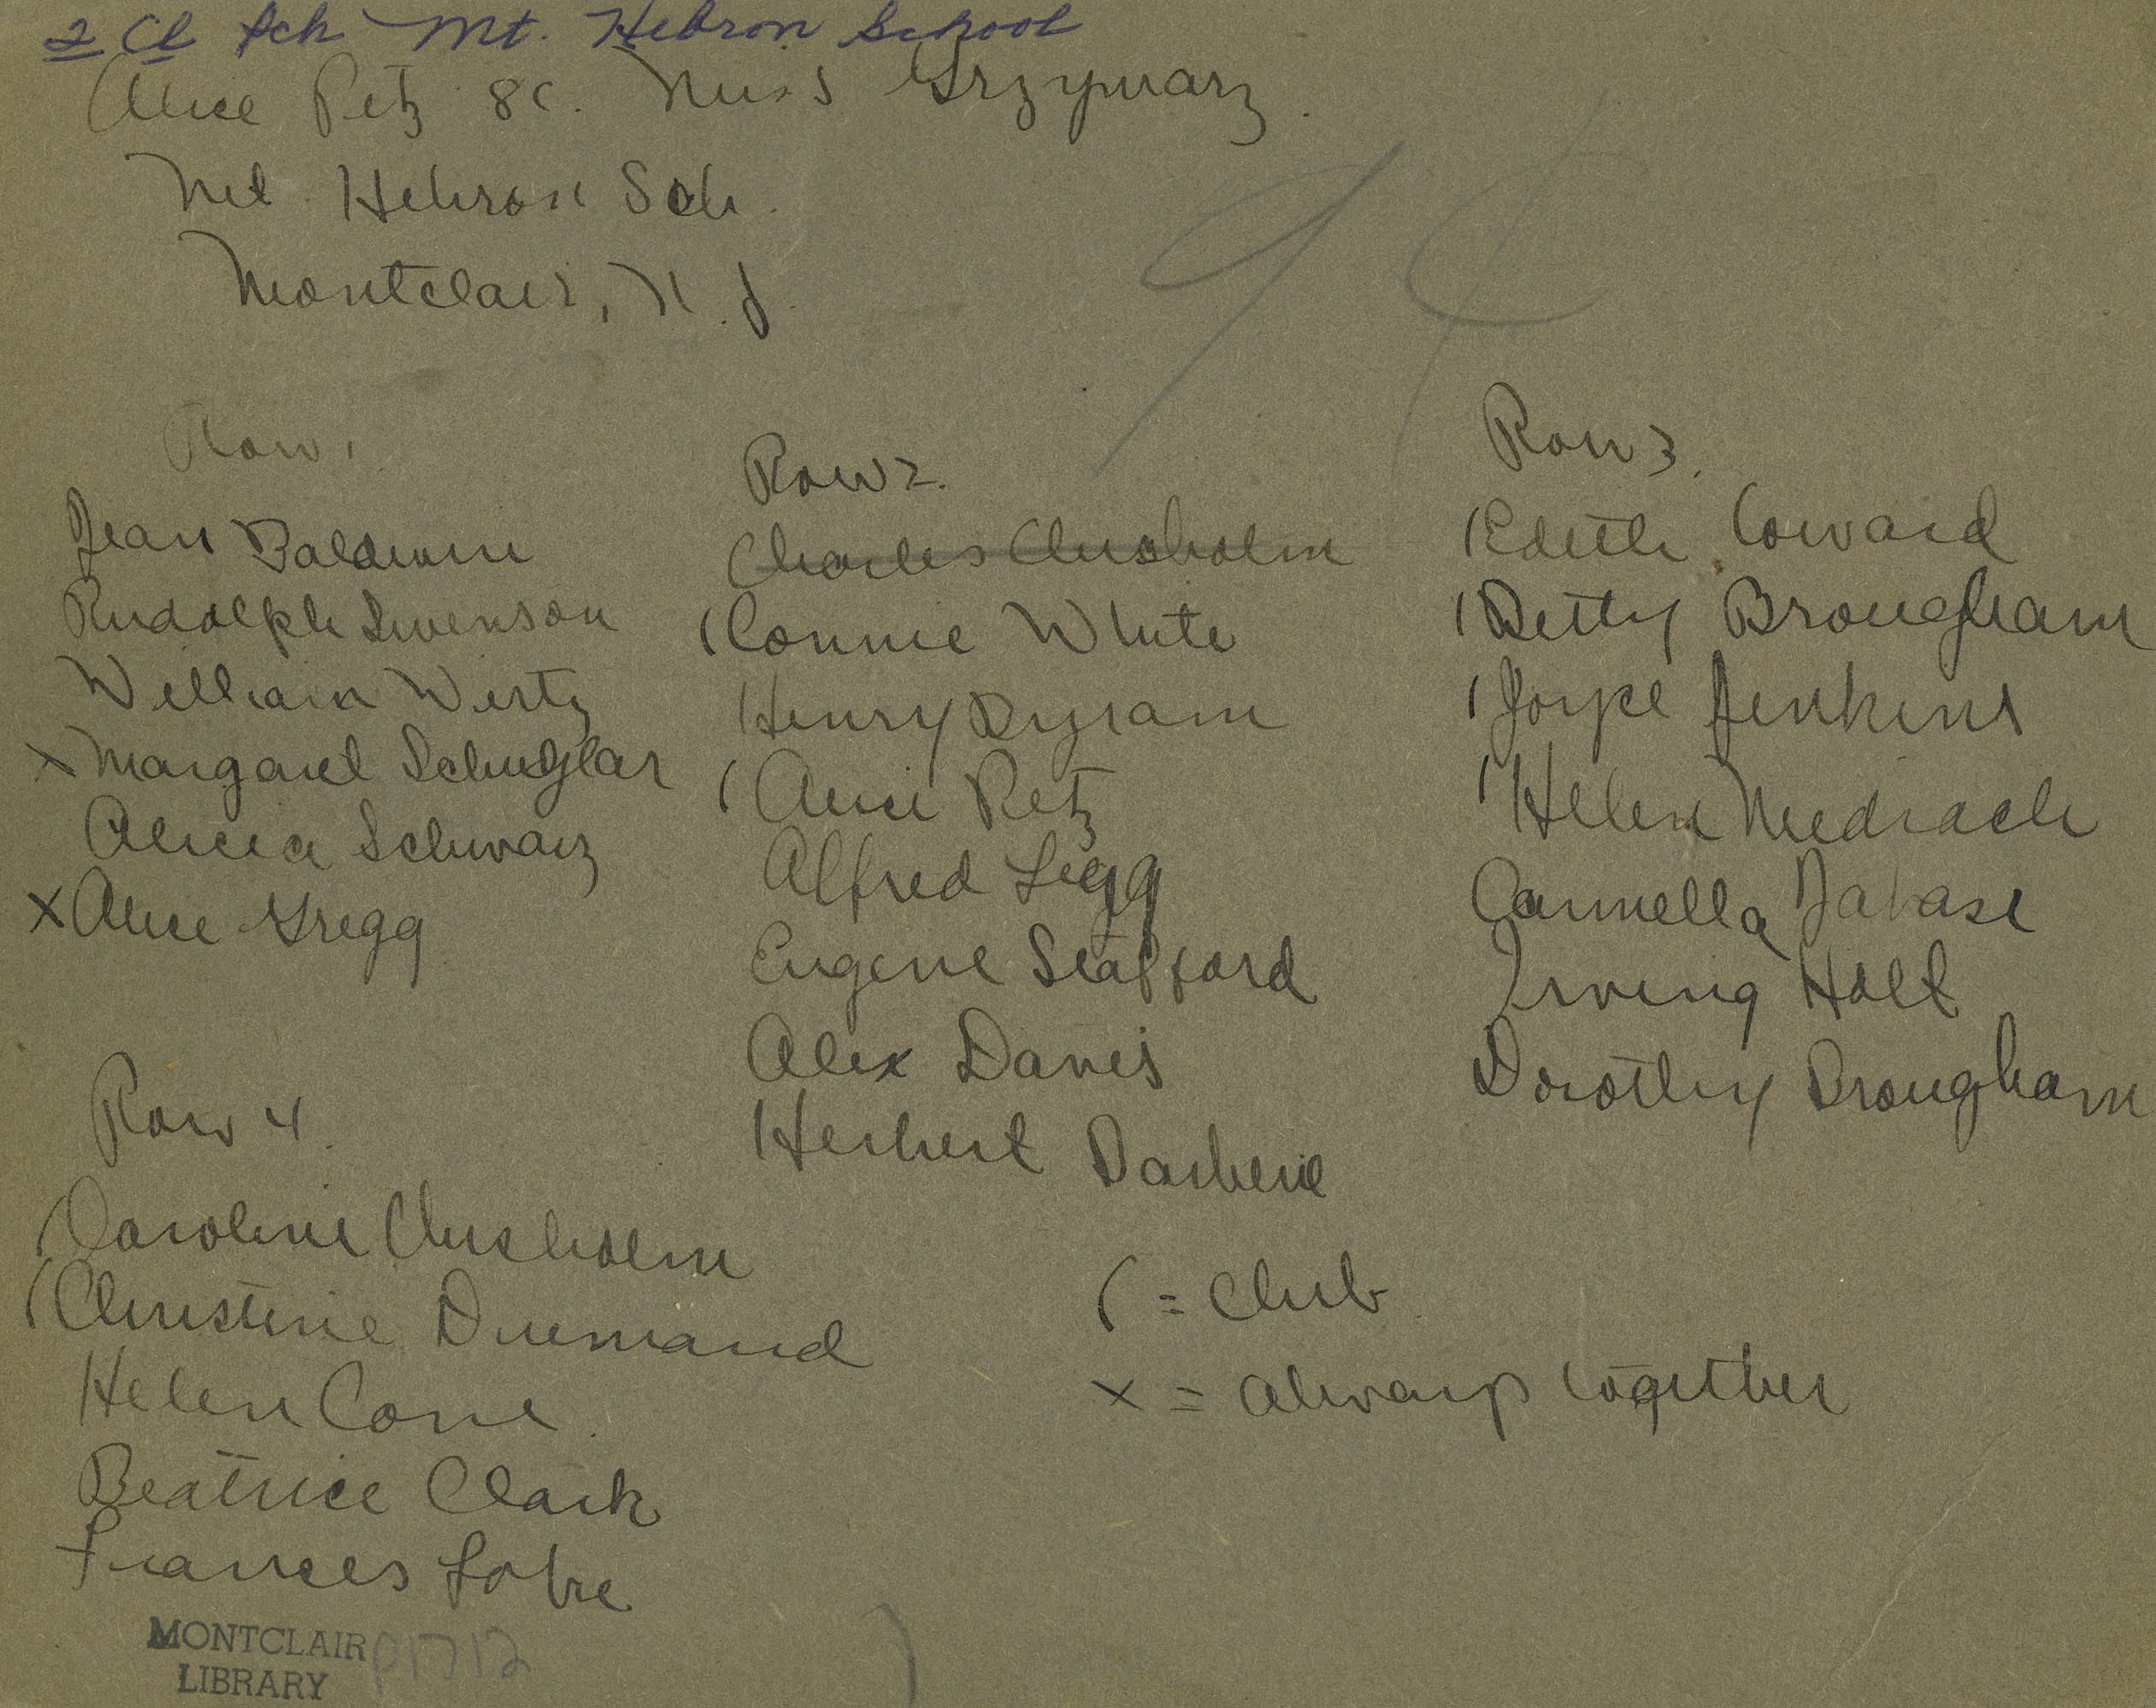 2 Cl Sch Mt. Hebron School
Alice Petz 8C. Miss Grzymarz.
Mt. Hebron Sch.
Montclair, N.J.
Row 1
Jean Baldwin
Rudolph Swenson
William Wertz
x Margaret Schuylar
Alicia Schwarz
x Alice Gregg
Row 2.
Charles Chisholm
( Connie White
Henry
( Alice Petz
Alfred Legg
Eugene Stafford
Alex Davis
Herbert
Row 3.
( Edith Coward
( Betty Brougham
( Joyce Jenkins
( Helen
Carmella
Irving Holt
Dorothy Brougham
Row 4.
( Caroline Chisholm
( Christine Dumand
Helen Cone
Beatrice Clark
Frances
( = club
x = always together
MONTCLAIR
LIBRARY
P1712